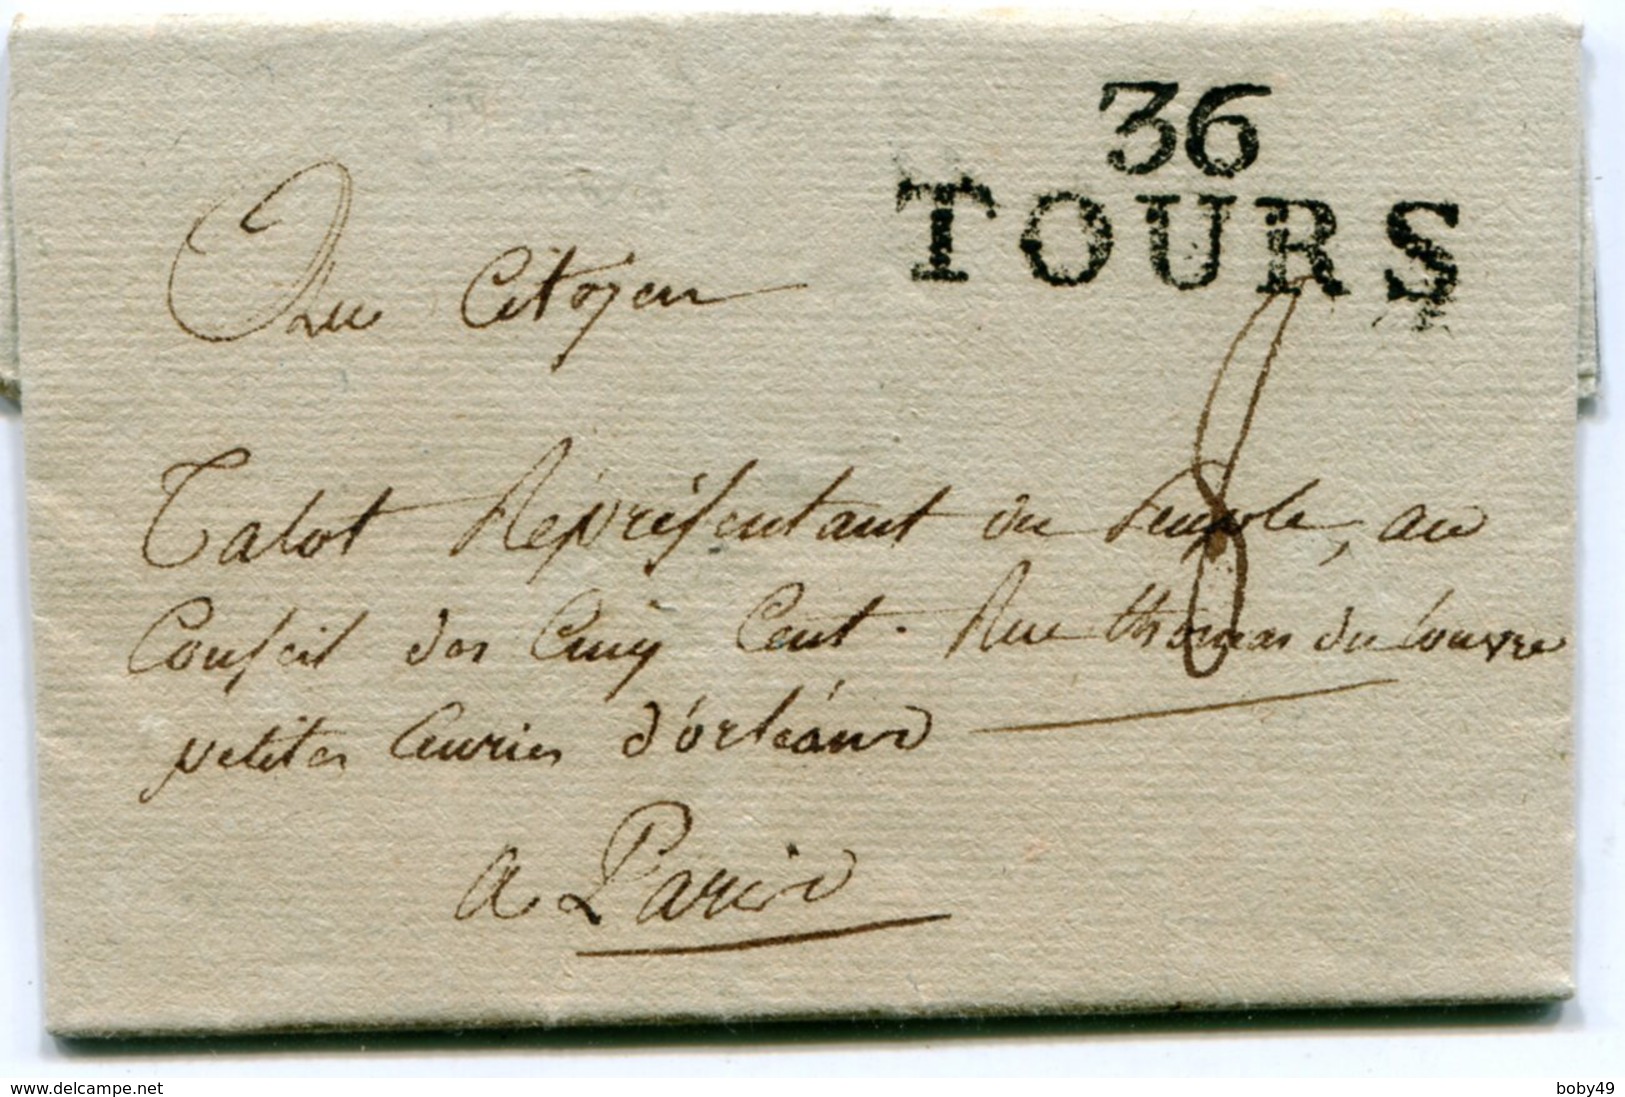 36
TOURS
Au Citoyen
8
Talot Réprésentant du Peuple, au
Conseil des Cinq Cent. Rue thomas du Louvre
petites Ecuries d'orléans
a Paris
www.delcampe.net
boby49